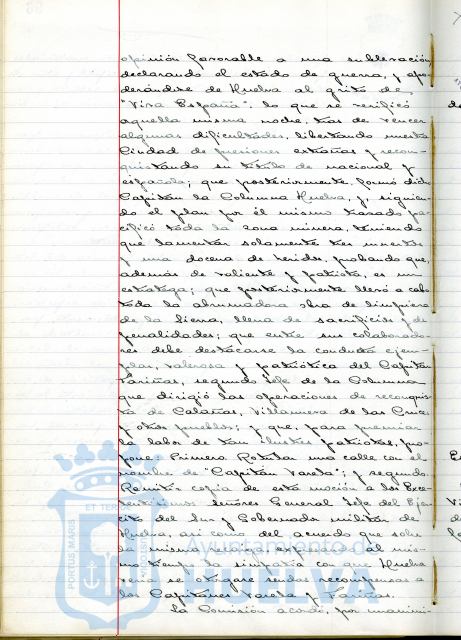 opinión favorable a una sublevación
declarando el estado de guerra, y apo-
derándose de Huelva al grito de
"Viva España", lo que se verificó
aquella misma noche, tras de vencer
algunas dificultades, libertando nuestra
Ciudad de presiones extrañas y recon-
quistando su título de nacional y
española; que posteriormente formó dicho
Capitán la Columna Huelva, y, siguien-
do el plan por él mismo trazado pa-
cificó toda la zona minera, teniendo
que lamentar solamente tres muertos
y una docena de heridos, probando que,
además de valiente y patriota, es un
estratega; que posteriormente llevó a cabo
toda la abrumadora obra de limpieza
de la Sierra, llena de sacrificios y de
penalidades; que entre sus colaborado-
res debe destacarse la conducta ejem-
plar, valerosa y patriótica del Capitán
Fariñas, segundo Jefe de la Columna
que dirigió las operaciones de reconquis-
ta de Calañas, Villanueva de las Cruces
y otros pueblos; y que, para premiar
la labor de tan ilustres patriotas, pro-
pone: Primero. Rotular una calle con el
nombre de "Capitán Varela"; y segundo
Remitir copia de esta moción a los Exce-
lentísimos señores General Jefe del Ejér-
cito del Sur y Gobernador militar de
Huelva, así como del acuerdo que sobre
la misma recaiga, expresando al mis-
mo tiempo la simpatía con que Huelva
vería se otorgase sendas recompensas a
los Capitanes Varela y Fariñas.
La Comisión acordó, por unanimi-
PORTUS MARIS
ET TERRAE
Ayuntamiento de
HUELVA